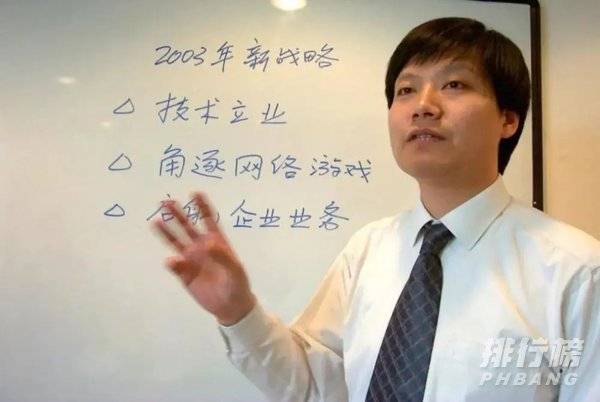 2003年新战略
△ 技术立业
△ 角逐网络游戏
△ 企业业务
排行榜
PHBANG